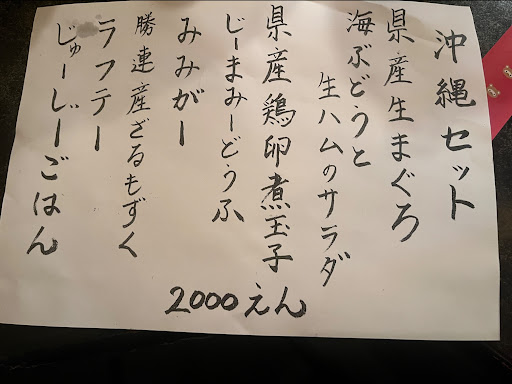 沖縄セット
県産生まぐろ
海ぶどうと
生ハムのサラダ
県産鶏卵煮玉子
じーまみーどうふ
みみがー
勝連産ざるもずく
ラフテー
じゅーしーごはん
2000えん